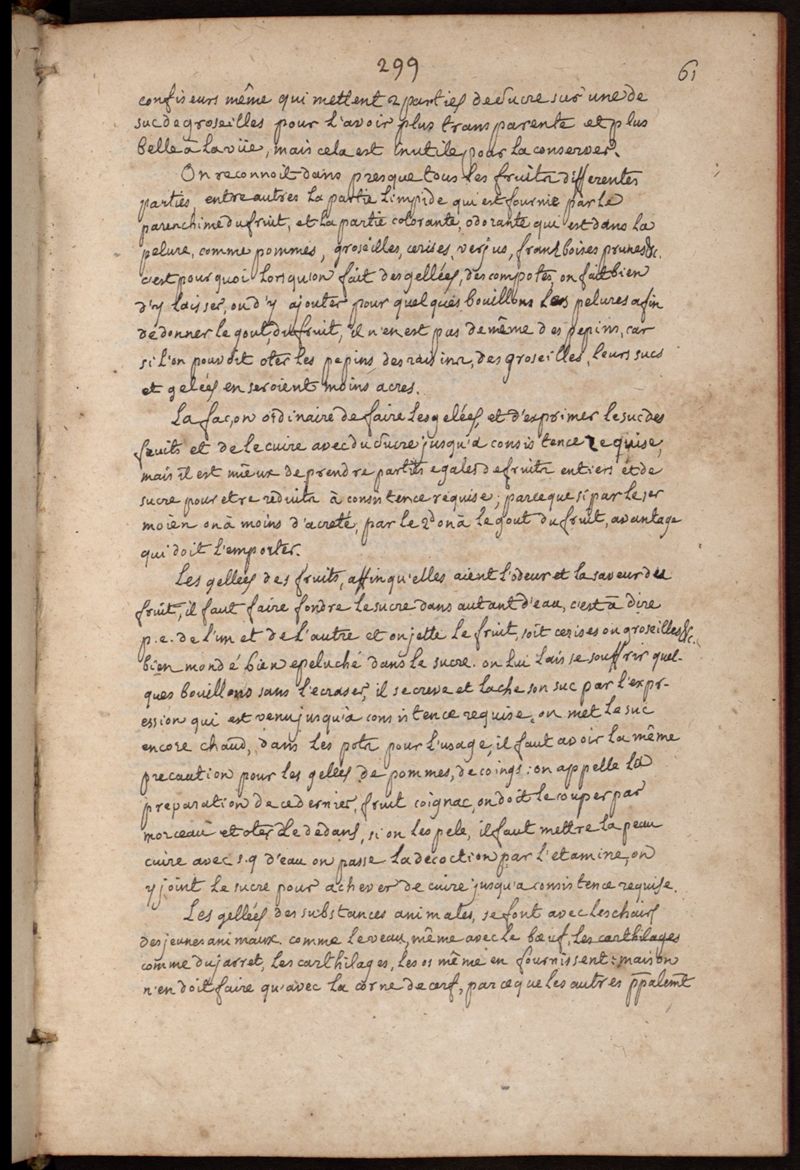 299
61
confiseurs même qui mettent 2 parties de sucre sur une de
suc de groseilles pour l'avoir plus transparente et plus
belle à la vüe, mais cela est inutile pour la conserver.
On reconnoit dans presque tous les fruits differentes
parties, entre autres la partie limpide qui est fournie par le
parenchime du fruit, et la partie colorante, odorante qui est dans la
pelure, comme pommes, groseilles, cerises, verjus, framboises prunes &c.
c'est pourquoi lorsqu'on fait des gellées, des compotes, on fait bien
d'y laisser, ou d'y ajouter pour quelques bouillons les pelures afin
de donner le gout du fruit, il n'en est pas de même des pepins, car
si l'on pouvoit oter les pepins des raisins, des groseilles, leurs sucs
et gelées en seroient moins acres.
La façon ordinaire de faire les gelées, est d'exprimer le suc des
fruits et de le cuire avec du sucre jusqu'à consistence requise,
mais il est mieux de prendre parties egales de fruits entiers et de
sucre pour etre réduits à consistence requise; parceque si par le 1er
moien on à moins d'acreté, par le 2d on à le gout du fruit, avantage
qui doit l'emporter.
Les gellées des fruits, affin qu'elles aient l'odeur et la saveur du
fruit, il faut faire fondre le sucre dans autant d'eau, c'est à dire
p.e. de l'un et de l'autre et on jette le fruit, soit cerises ou groseilles &c.
bien mondé bien epeluché dans le sucre. on lui laisse souffrir quel-
ques bouillons sans l'ecraser, il se creve et lache son suc par l'expr-
ession qui est venu jusqu'à consistence requise, on met le suc
encore chaud, dans les pots pour l'usage, il faut avoir la même
precaution pour les gelées de pommes, de coings: on appelle la
preparation de ce dernier fruit coignac, on doit le couper par
morceau et oter le dedans, si on les pele, il faut mettre la peau
cuire avec s.q d'eau on passe la décoction par l'etamine, on
y joint le sucre pour achever de cuire jusqu'a consistence requise.
Les gellées des substances animales, se font avec les chairs
des jeunes animaux comme le veau, même avec le bœuf, les carthilages
comme du jarret, les carthilages, les os même en fournissent: mais on
n'en doit faire qu'avec la corne de cerf, parceque les autres ppalemt